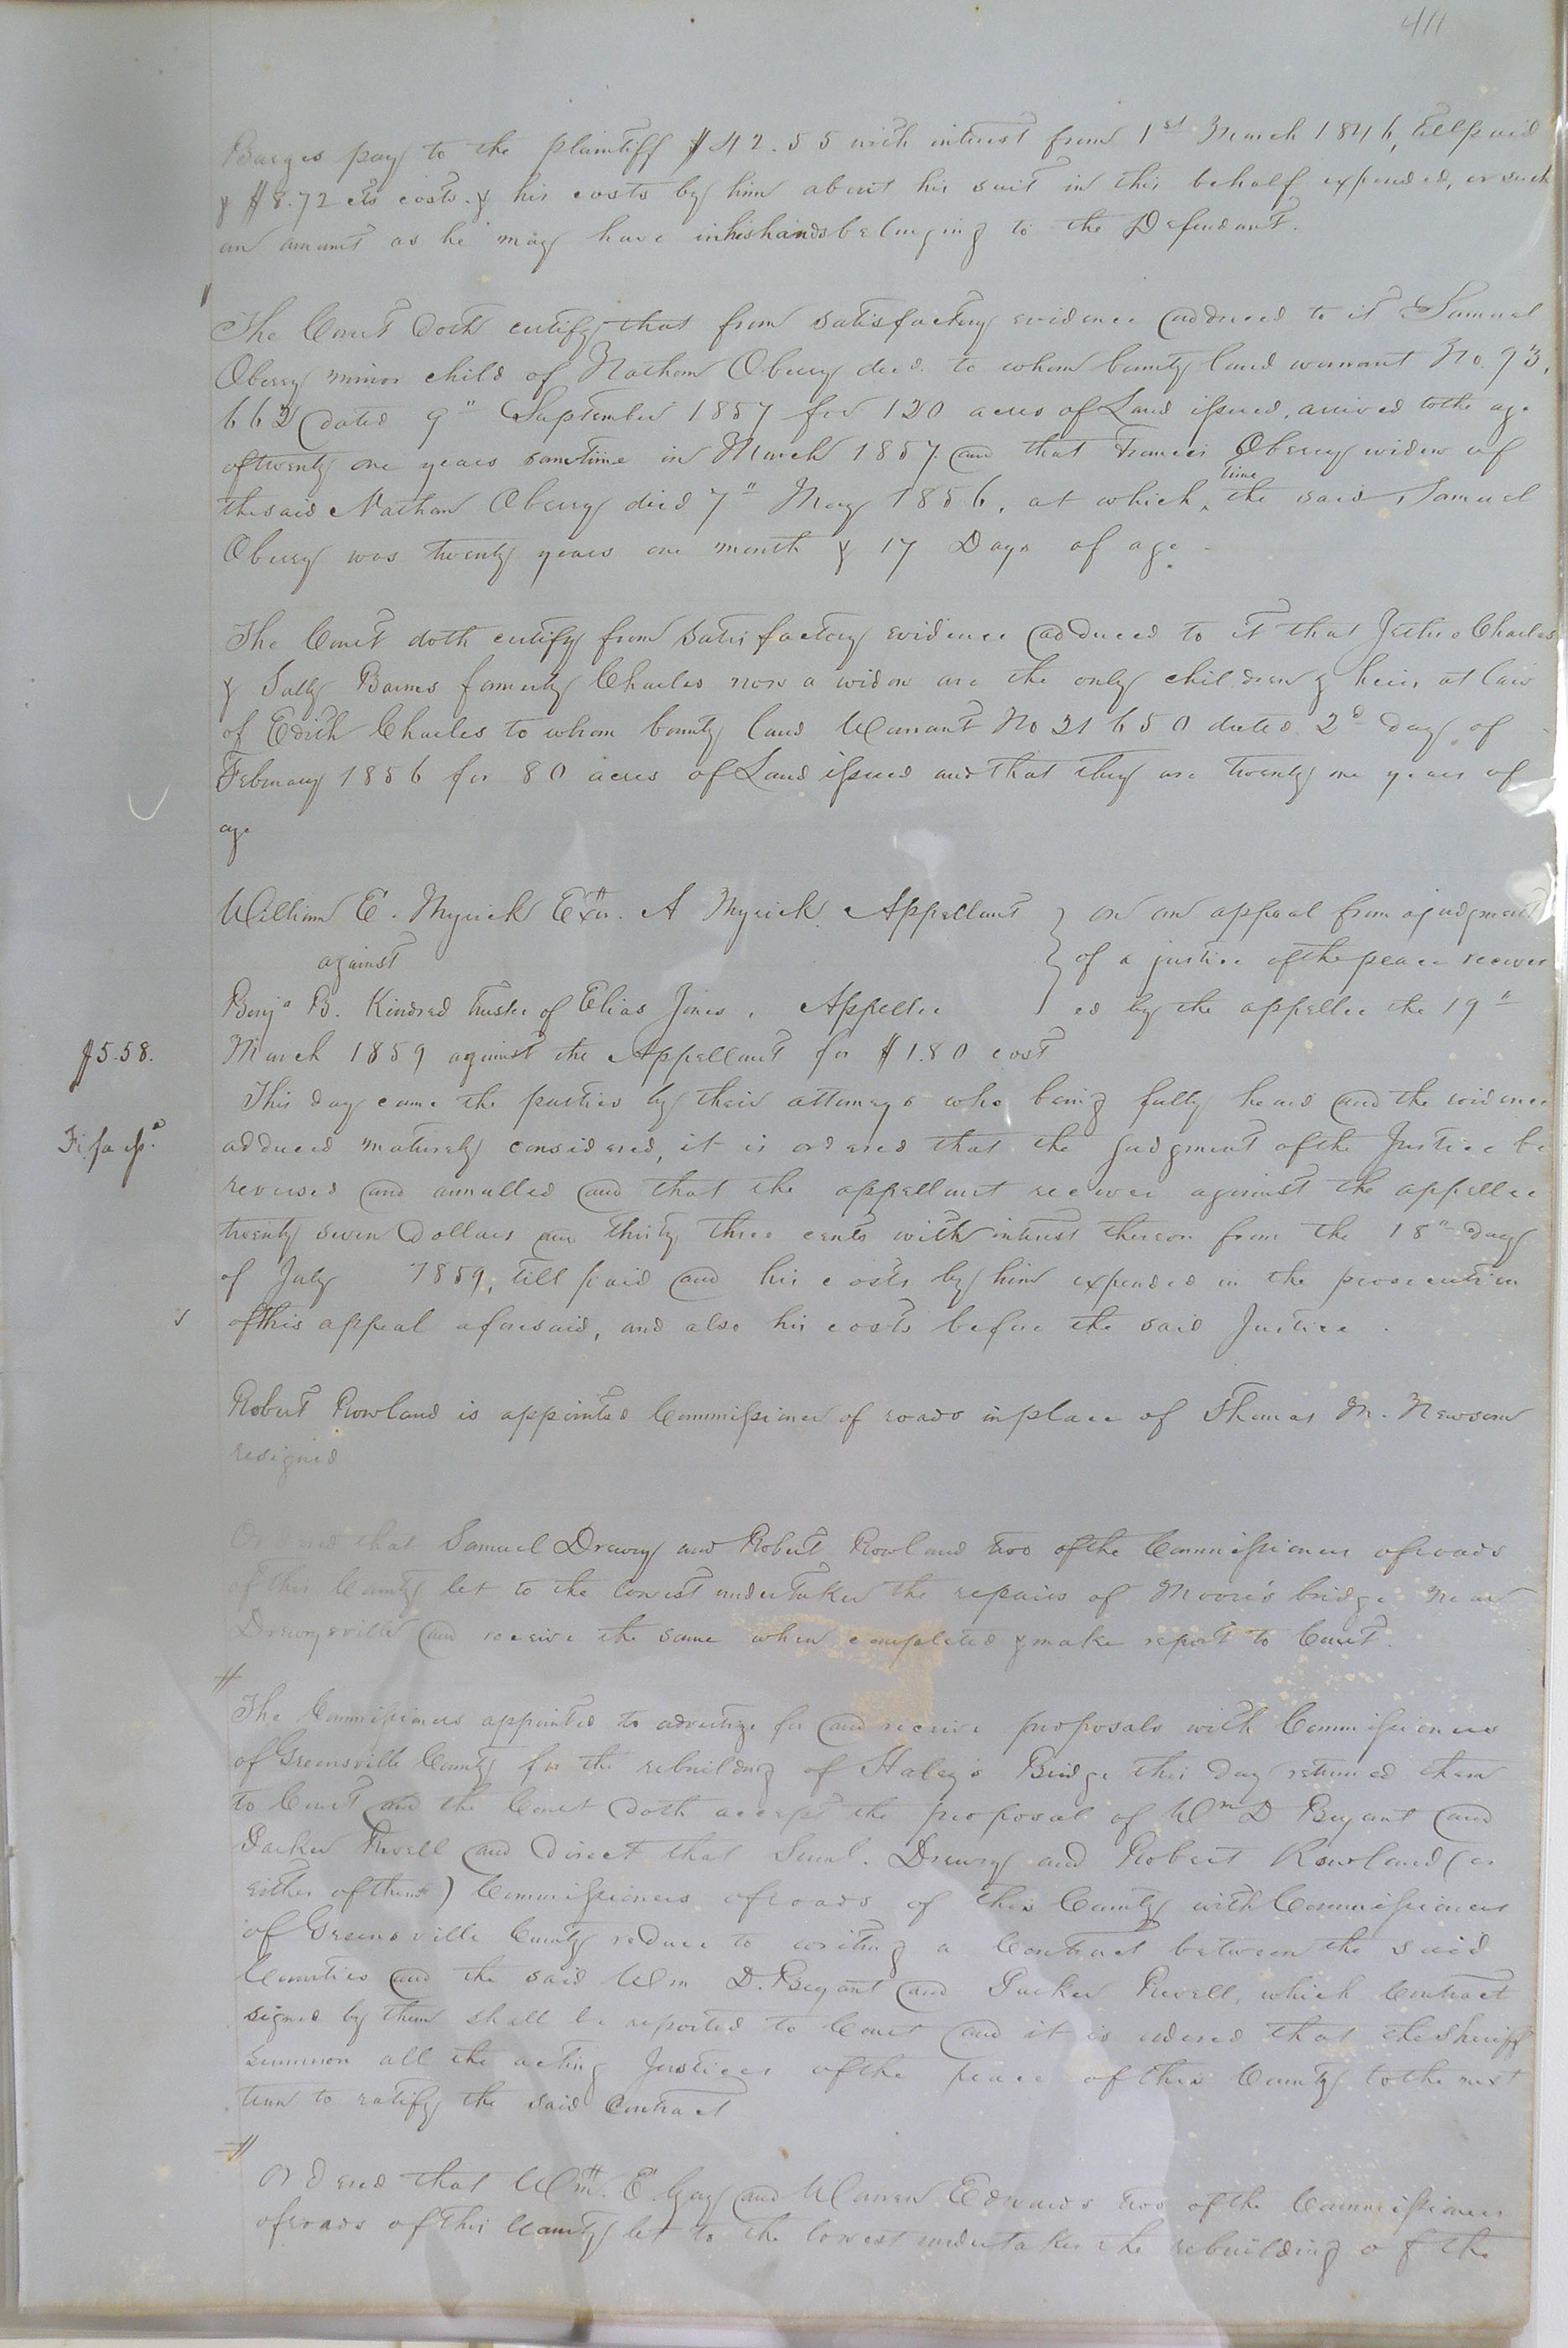 411
Barges pay to the plaintiff $42.55 with interest from 1st March 1846, till paid
& $8.72 cts costs. & his costs by him about his suit in this behalf expended, or such
an amount as he may have in his hands belonging to the Defendant.
The Court doth certify that from satisfactory evidence adduced to it Samuel
Oberry minor child of Nathan Oberry decd. to whom bounty land warrant No. 93,
662 dated 9" September 1857 for 120 acres of Land issued, arrived to the age
of twenty one years sometime in March 1857 and that Frances Oberry widow of
the said Nathan Oberry died 7" May 1856, at which time the said Samuel
Oberry was twenty years one month & 17 Days of age.
The Court doth certify from satisfactory evidence adduced to it that Jethro Charles
& Sally Barnes formerly Charles now a widow are the only children & heirs at law
of Edith Charles to whom bounty land Warrant No 21650 dated 2d day of
February 1856 for 80 acres of Land issued and that they are twenty one years of
age
William E. Myrick Exr. A Myrick Appellant } on an appeal from a judgment
against } of a justice of the peace recover
Benja B. Kindred trustee of Elias Jones, Appellee } ed by the appellee the 19"
$5.58. March 1859 against the Appellant for $1.80 cost
This day came the parties by their attorneys who being fully heard and the evidence
Fi. fa isd. adduced maturely considered, it is ordered that the judgment of the Justice be
reversed and annulled and that the appellant recover against the appellee
twenty seven Dollars and thirty three cents with interest thereon from the 18" day
of July 1859, till paid and his costs by him expended in the prosecution
of this appeal aforesaid, and also his costs before the said Justice.
Robert Rowland is appointed Commissioner of roads in place of Thomas M. Newsom
resigned
Ordered that Samuel Drewry and Robert Rowland two of the Commissioners of roads
of this County let to the lowest undertaker the repairs of Moore's bridge near
Drewrysville and receive the same when completed & make report to Court.
The Commissioners appointed to advertize for and receive proposals with Commissioners
of Greensville County for the rebuilding of Haley's Bridge this day returned them
to Court and the Court doth accept the proposal of Wm D Bryant and
Packer Revell and direct that Saml. Drewry and Robert Rowland (or
either of them) Commissioners of roads of this County with Commissioners
of Greensville County reduce to writing a Contract between the said
Counties and the said Wm D. Bryant and Packer Revell, which Contract
signed by them shall be reported to Court and it is ordered that the Sheriff
summon all the acting Justices of the peace of this County to the next
term to ratify the said Contract
Ordered that Wm. E Gay and Warren Edwards two of the Commissioners
of roads of this County let to the lowest undertaker the rebuilding of the